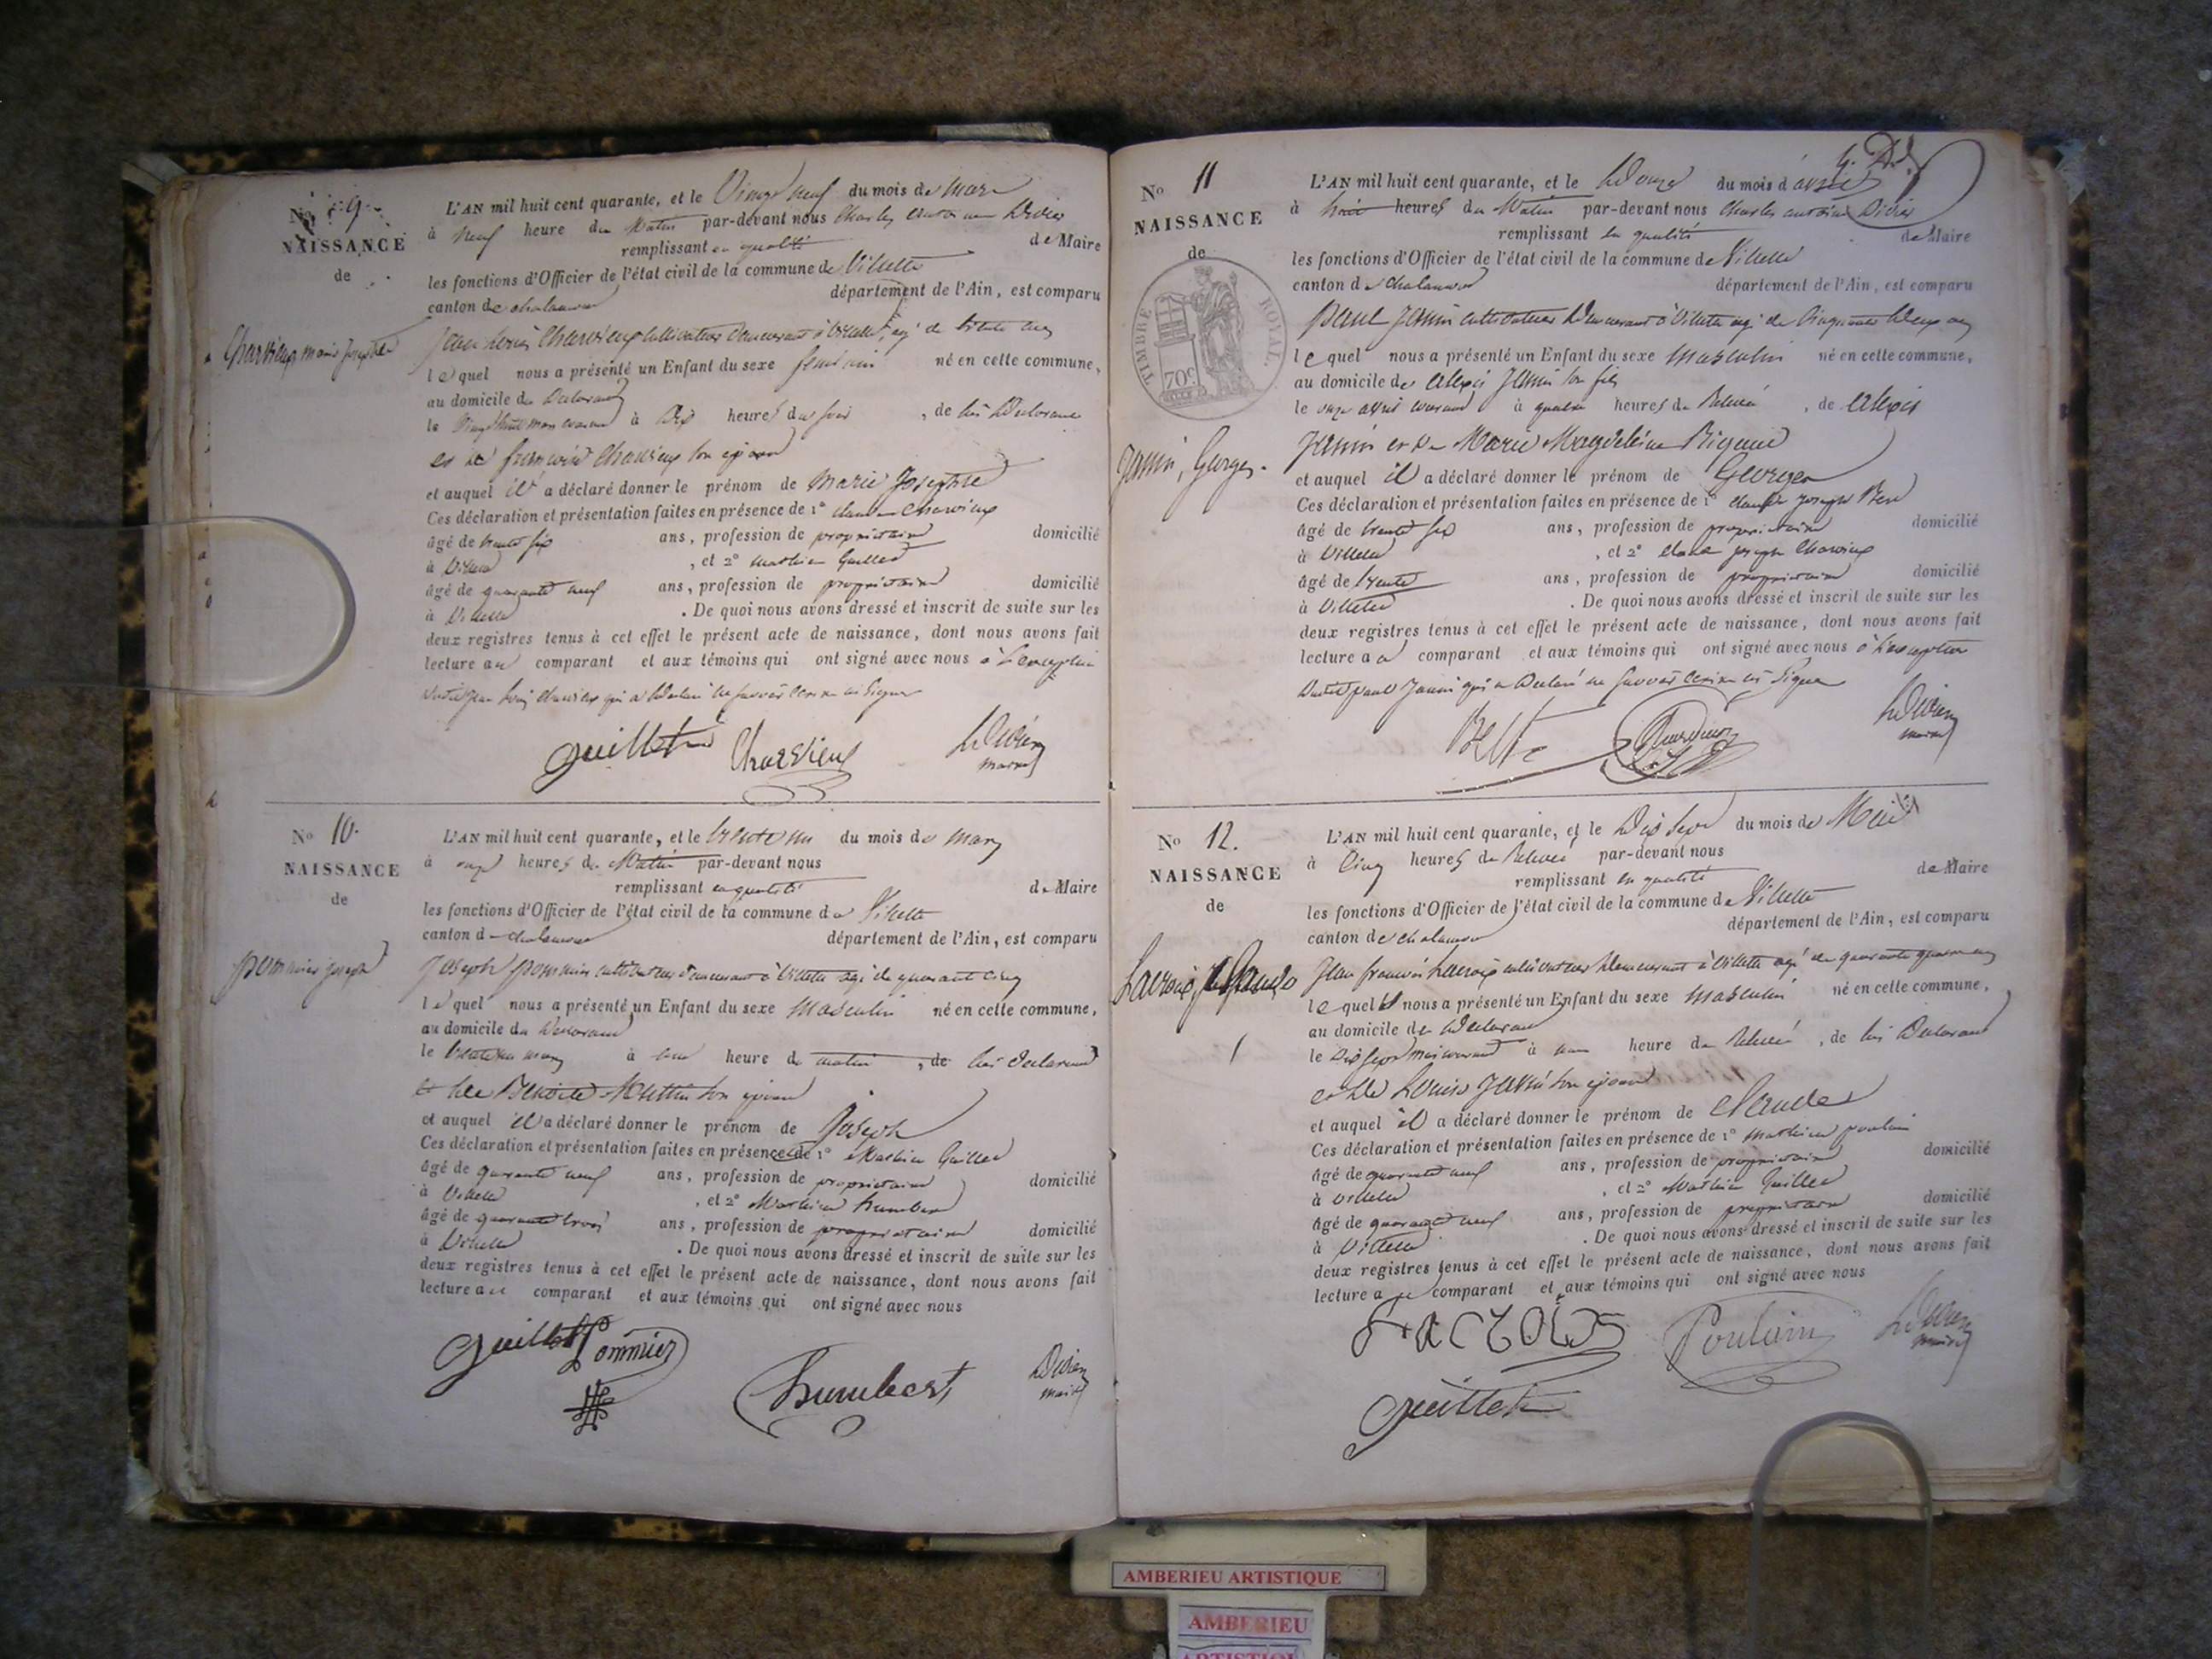 No 9.
NAISSANCE
de
Charvieux marie Josephte
L'AN mil huit cent quarante, et le Vingt neuf du mois de Mars
à Neuf heure du Matin par-devant nous Charles antoine Divier
remplissant en qualité de Maire
les fonctions d'Officier de l'état civil de la commune de Villette
canton de chalamont département de l'Ain, est comparu
Jean Louis Charvieux Cultivateur demeurant à Villette, agé de trente
lequel nous a présenté un Enfant du sexe féminin né en cette commune,
au domicile du Déclarant
le Vingt huit mars courant à Dix heures du soir, de lui Déclarant
et de Charvieux son épouse
et auquel il a déclaré donner le prénom de Marie Josephte
Ces déclaration et présentation faites en présence de 1° Charvieux
âgé de trente six ans, profession de propriétaire domicilié
à Villette, et 2° Mathieu Guillet
âgé de quarante neuf ans, profession de propriétaire domicilié
à Villette. De quoi nous avons dressé et inscrit de suite sur les
deux registres tenus à cet effet le présent acte de naissance, dont nous avons fait
lecture au comparant et aux témoins qui ont signé avec nous à l'exception
dudit Jean Louis Charvieux qui a Déclaré ne savoir écrire ni Signer
Guillet Charvieux Divier
maire
No 10.
NAISSANCE
de
pommier joseph
L'AN mil huit cent quarante, et le trente un du mois de mars
à onze heures du Matin par-devant nous
remplissant en qualité de Maire
les fonctions d'Officier de l'état civil de la commune de Villette
canton de chalamont département de l'Ain, est comparu
Joseph pommier cultivateur demeurant à Villette agé de quarante cinq
lequel nous a présenté un Enfant du sexe Masculin né en cette commune,
au domicile du Déclarant
le trente un mars à une heure du matin, de lui Déclarant
et de Benoite son épouse
et auquel il a déclaré donner le prénom de Joseph
Ces déclaration et présentation faites en présence de 1° Mathieu Guillet
âgé de quarante neuf ans, profession de propriétaire domicilié
à Villette, et 2° Mathieu humbert
âgé de quarante trois ans, profession de propriétaire domicilié
à Villette. De quoi nous avons dressé et inscrit de suite sur les
deux registres tenus à cet effet le présent acte de naissance, dont nous avons fait
lecture au comparant et aux témoins qui ont signé avec nous
Guillet Pommier
humbert Divier
maire
No 11
NAISSANCE
de
TIMBRE ROYAL.
70c
Janin, Georges.
L'AN mil huit cent quarante, et le Douze du mois d'avril
à huit heures du Matin par-devant nous Charles antoine Divier
remplissant en qualité de Maire
les fonctions d'Officier de l'état civil de la commune de Villette
canton de chalamont département de l'Ain, est comparu
paul Janin cultivateur Demeurant à Villette agé de Cinquante Deux ans
lequel nous a présenté un Enfant du sexe Masculin né en cette commune,
au domicile de Alexis Janin son fils
le onze avril courant à quatre heures de Relevée, de Alexis
Janin et de Marie Magdeleine Rigaud
et auquel il a déclaré donner le prénom de Georges
Ces déclaration et présentation faites en présence de 1° claude joseph
âgé de trente six ans, profession de propriétaire domicilié
à Villette, et 2° joseph Charvieux
âgé de trente ans, profession de propriétaire domicilié
à Villette. De quoi nous avons dressé et inscrit de suite sur les
deux registres tenus à cet effet le présent acte de naissance, dont nous avons fait
lecture au comparant et aux témoins qui ont signé avec nous à l'exception
Dudit paul Janin qui a Déclaré ne savoir écrire ni Signer
Divier
maire
No 12.
NAISSANCE
de
Lacroix, Claude
L'AN mil huit cent quarante, et le Dix Sept du mois de Mai
à Cinq heures de Relevée par-devant nous
remplissant en qualité de Maire
les fonctions d'Officier de l'état civil de la commune de Villette
canton de chalamont département de l'Ain, est comparu
Jean françois Lacroix cultivateur Demeurant à Villette agé de quarante quatre ans
lequel nous a présenté un Enfant du sexe Masculin né en cette commune,
au domicile du Déclarant
le Dix Sept Mai courant à une heure de Relevée, de lui Déclarant
et de Louise Janin son épouse
et auquel il a déclaré donner le prénom de Claude
Ces déclaration et présentation faites en présence de 1° Mathieu poulain
âgé de quarante neuf ans, profession de propriétaire domicilié
à Villette, et 2° Mathieu Guillet
âgé de quarante neuf ans, profession de propriétaire domicilié
à Villette. De quoi nous avons dressé et inscrit de suite sur les
deux registres tenus à cet effet le présent acte de naissance, dont nous avons fait
lecture au comparant et aux témoins qui ont signé avec nous
Lacroix Poulain Divier
maire
Guillet
AMBERIEU ARTISTIQUE
AMBERIEU
ARTISTIQUE